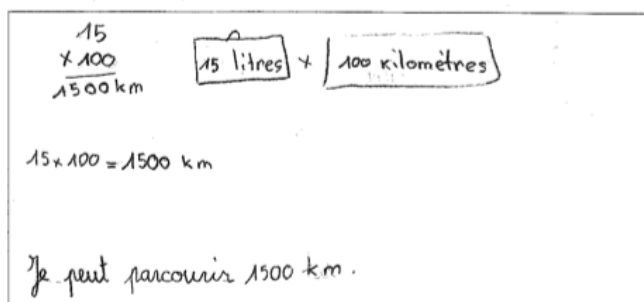 15
x 100
1500 km
15 litres x 100 kilomètres
15 x 100 = 1500 km
Je peut parcourir 1500 km.